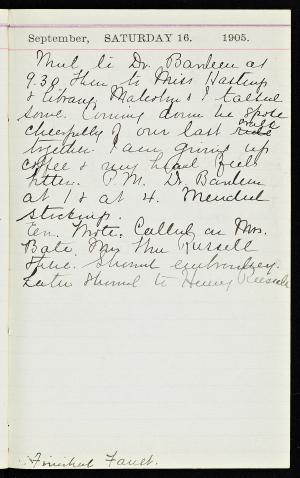 September, SATURDAY 16. 1905.
Dr. Bardeen at
9.30 then to Miss Hastings
& library, Malcolm & I talked
some. Coming down he spoke
cheerfully of our last ride
together. I am giving up
coffee & my head feels
better. P.M. Dr. Bardeen
at 1 & at 4. Mended
stockings.
Ev. Wrote. Called on Mrs.
Bate. Mrs Russell
there. Showed embroidery.
Later showed to Henry Russell
Finished Faust.